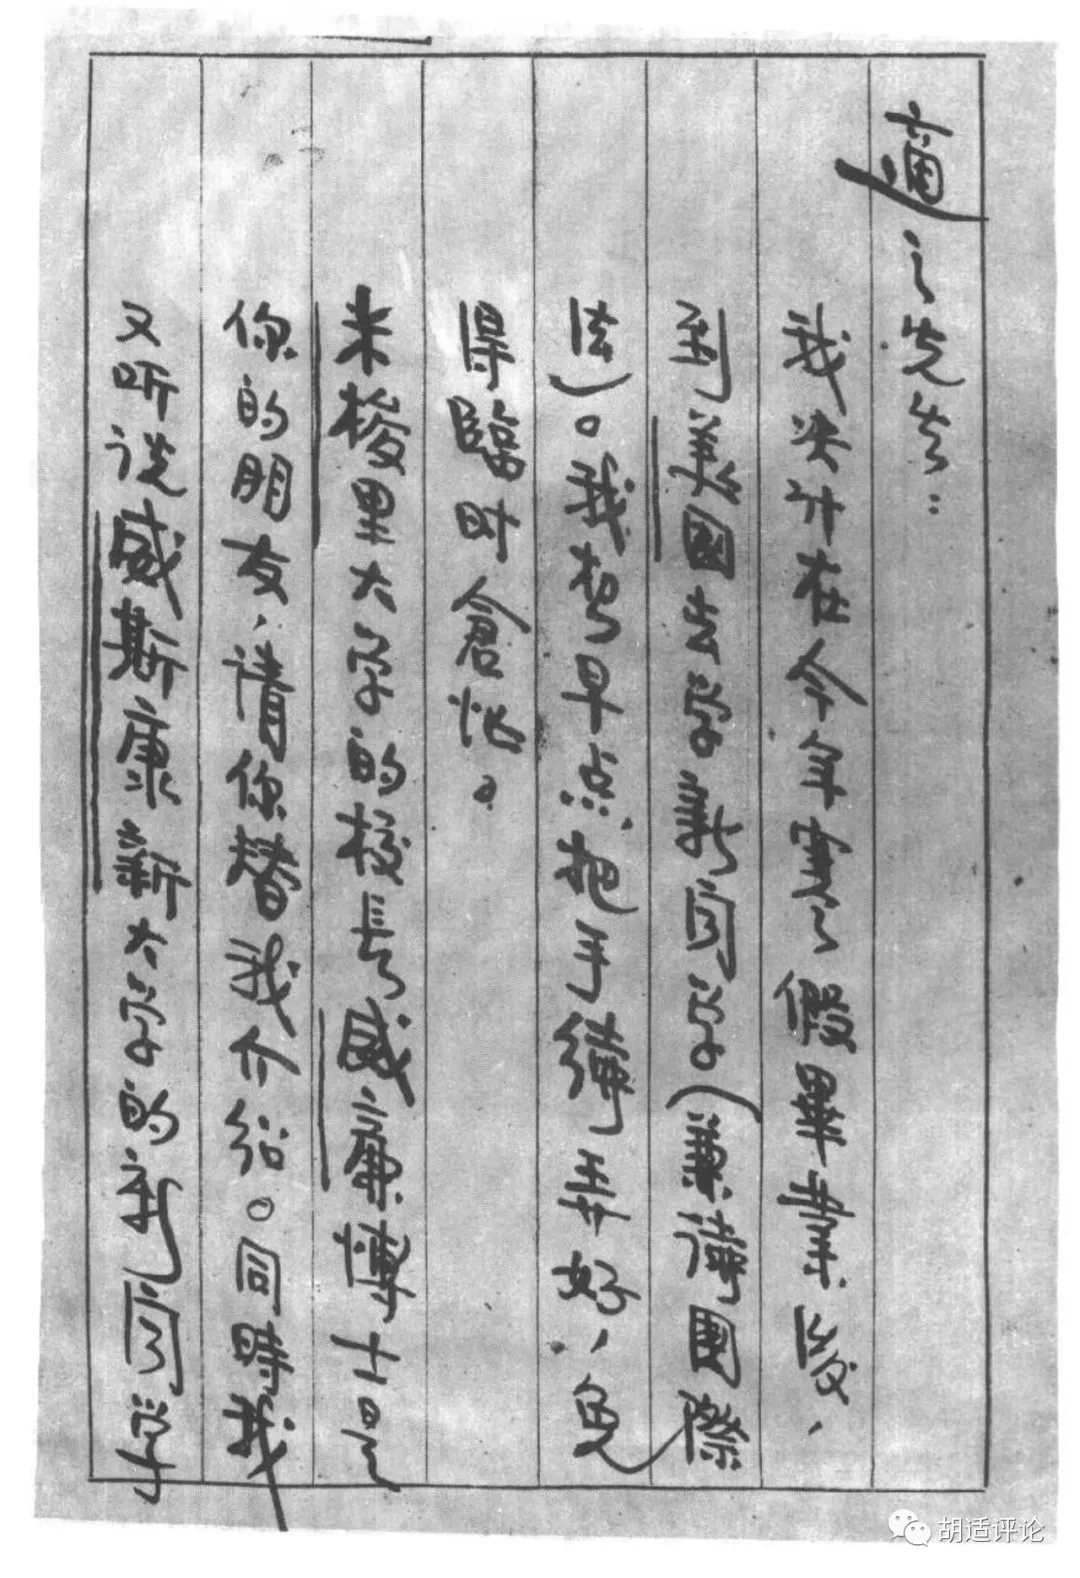 適之先生：
我決计在今年寒假畢業後、
到美國去学新闻学（兼備國際
法）。我想早点把手續弄好、免
得臨时倉忙。
米梭里大学的校长威廉博士是
你的朋友、請你替我介绍。同時我
又听说威斯康新大学的新闻学
胡适评论